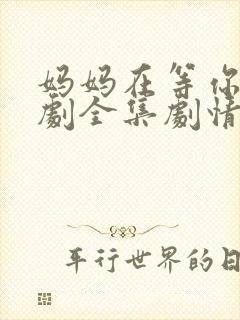 妈妈在等你
劇全集劇情
平行世界的日